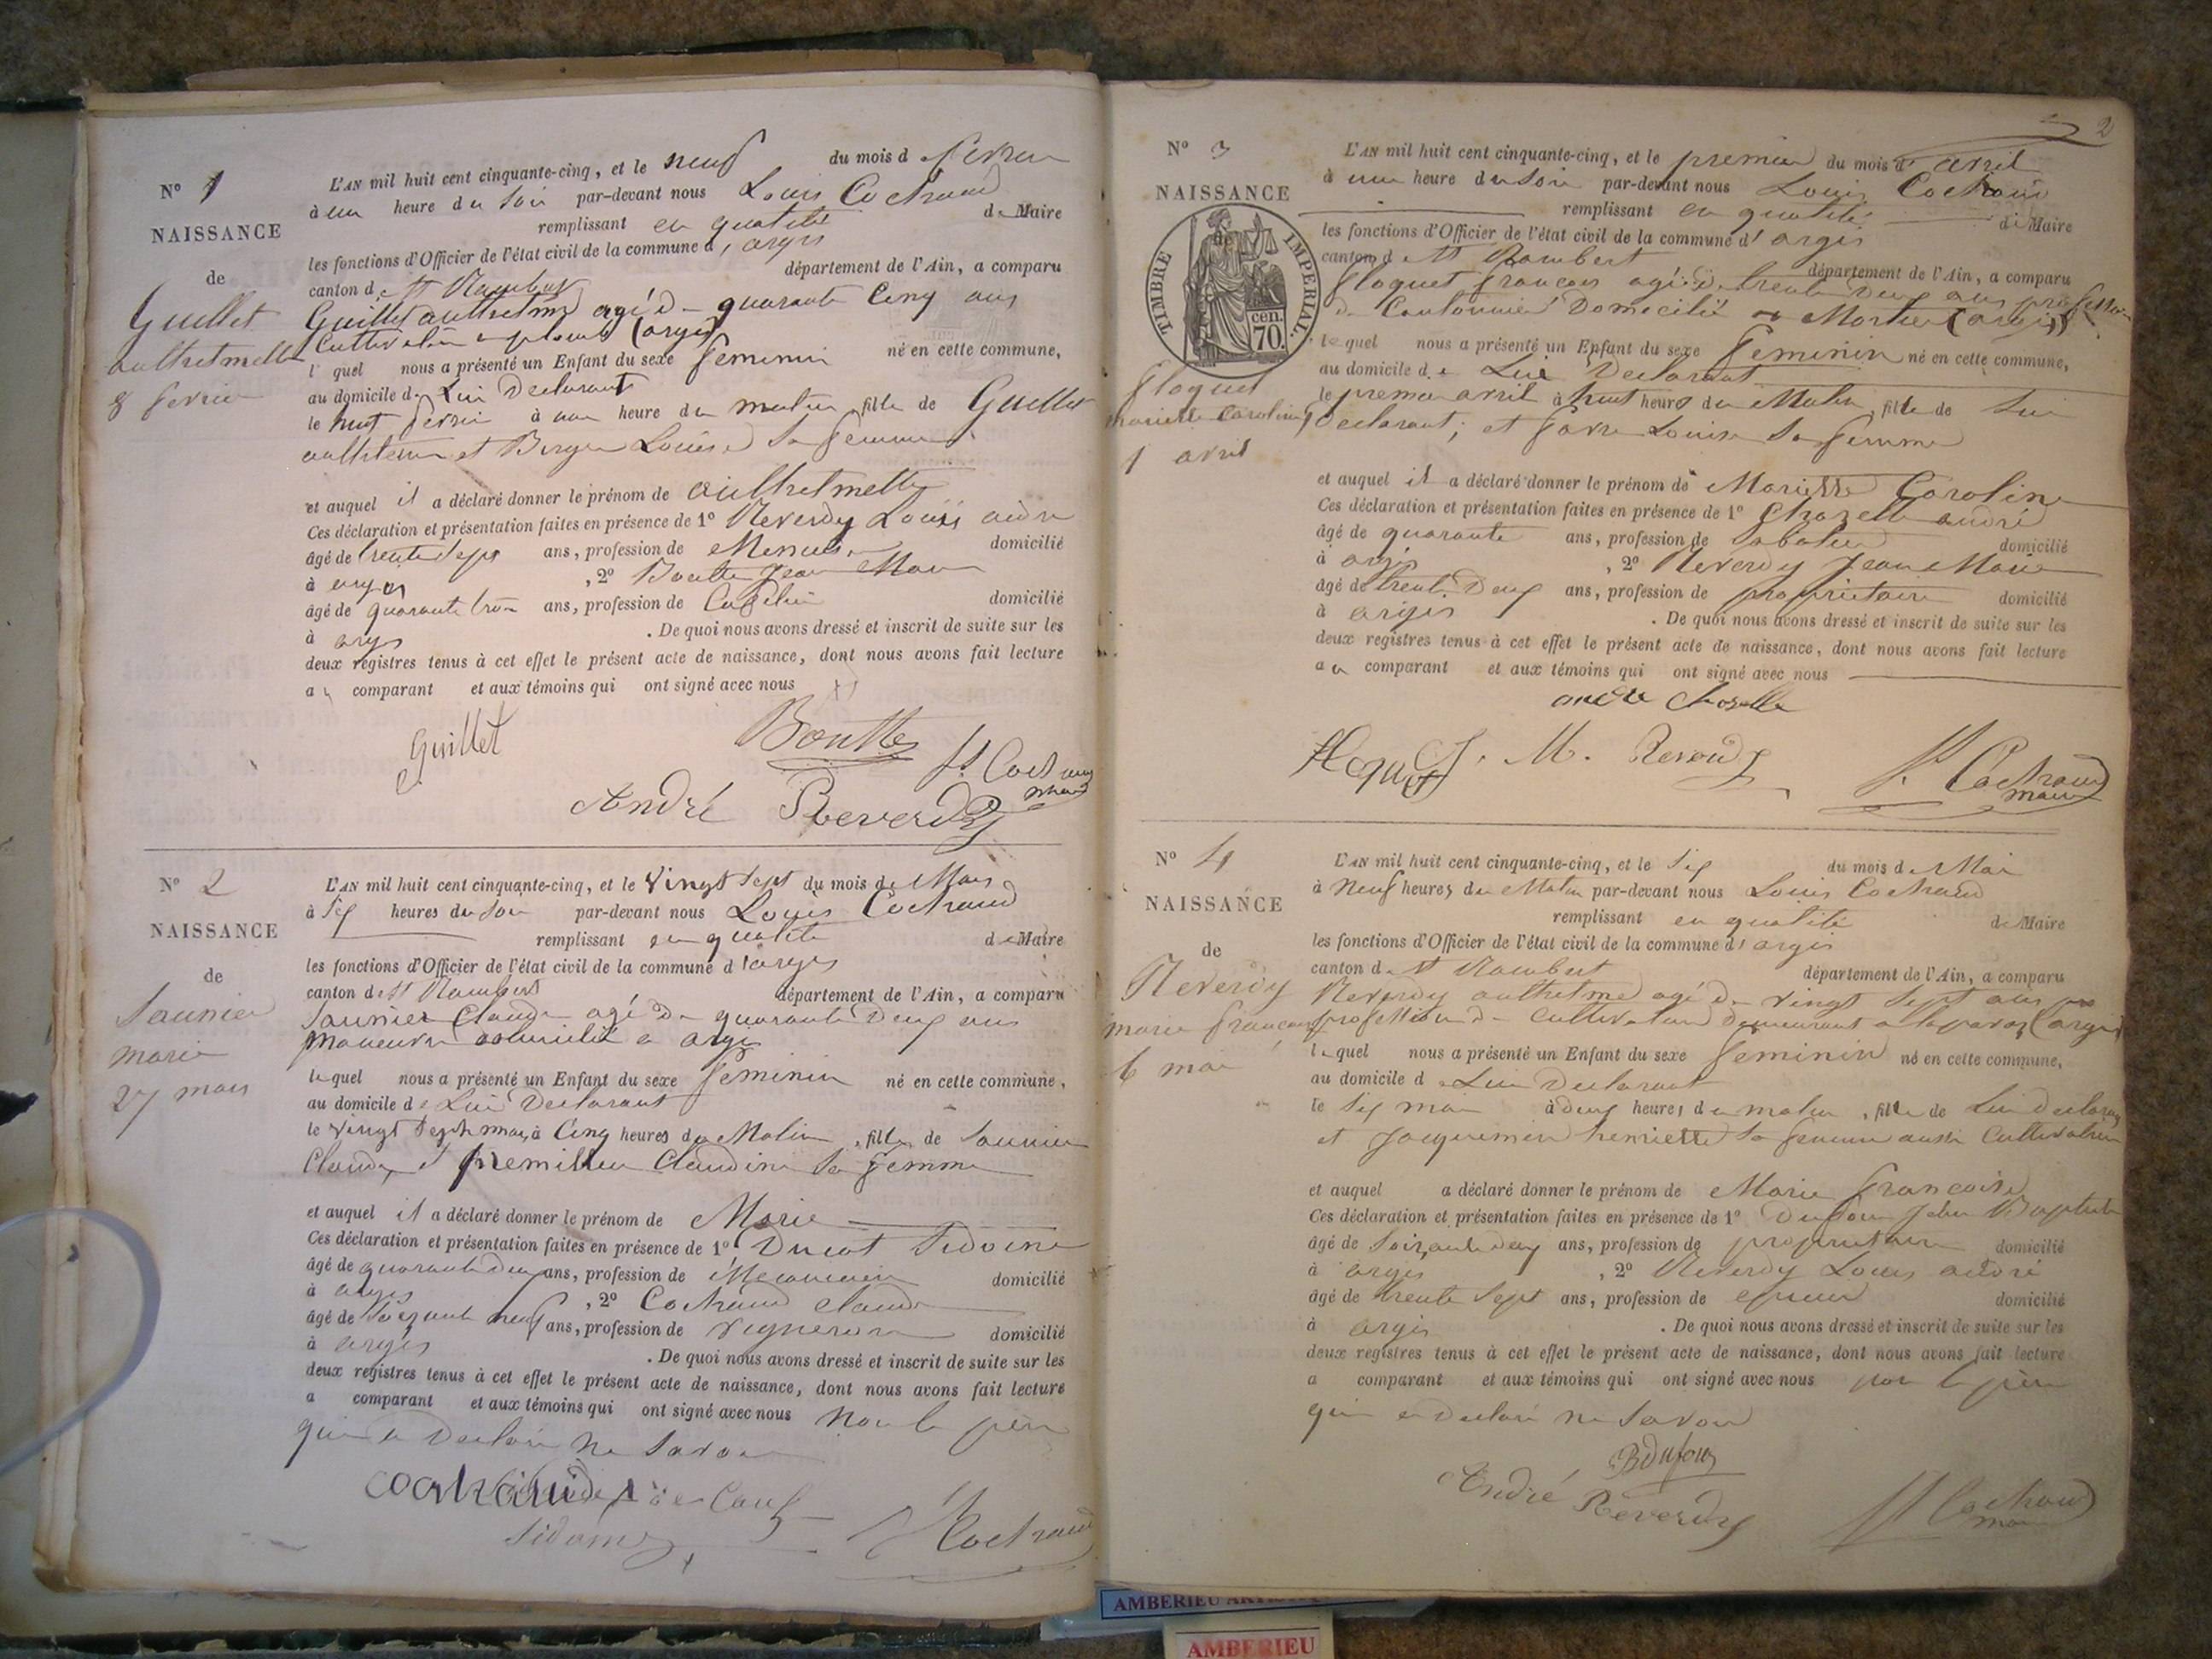 N° 1
NAISSANCE
de
Guillet
8 fevrier
L'AN mil huit cent cinquante-cinq, et le neuf du mois d fevrier
à une heure du soir par-devant nous Louis Cochaud
remplissant en qualité de Maire
les fonctions d'Officier de l'état civil de la commune d'argis
canton de St Rambert département de l'Ain, a comparu
Guillet agé de quarante cinq ans
Cultivateur (argis)
lequel nous a présenté un Enfant du sexe feminin né en cette commune,
au domicile de Lui Declarant
le huit fevrier à une heure du matin, fille de Guillet
et Louise Sa femme
et auquel il a déclaré donner le prénom de
Ces déclaration et présentation faites en présence de 1° Reverdy Louis andre
âgé de trente sept ans, profession de domicilié
à argis , 2° Jean Marie
âgé de quarante trois ans, profession de domicilié
à argis . De quoi nous avons dressé et inscrit de suite sur les
deux registres tenus à cet effet le présent acte de naissance, dont nous avons fait lecture
au comparant et aux témoins qui ont signé avec nous
Guillet
André Reverdy
N° 2
NAISSANCE
de
Saunier
marie
27 mars
L'AN mil huit cent cinquante-cinq, et le vingt sept du mois de Mars
à Six heures du soir par-devant nous Louis Cochaud
remplissant en qualité de Maire
les fonctions d'Officier de l'état civil de la commune d'argis
canton de St Rambert département de l'Ain, a comparu
Saunier Claude agé de quarante Deux ans
maneuvre domicilié a argis
lequel nous a présenté un Enfant du sexe feminin né en cette commune,
au domicile de Lui Declarant
le vingt Sept mars à Cinq heures du Matin, fille de Saunier
Claude et Claudine Sa femme
et auquel il a déclaré donner le prénom de Marie
Ces déclaration et présentation faites en présence de 1° Sidoine
âgé de quarante deux ans, profession de domicilié
à argis , 2° Cochaud Claude
âgé de Soixante neuf ans, profession de vigneron domicilié
à argis . De quoi nous avons dressé et inscrit de suite sur les
deux registres tenus à cet effet le présent acte de naissance, dont nous avons fait lecture
a comparant et aux témoins qui ont signé avec nous Non le père
qui a Declaré Ne Savoir
2
N° 3
NAISSANCE
de
TIMBRE IMPERIAL.
70. cen.
floquet
Mariette Caroline
1 avril
L'AN mil huit cent cinquante-cinq, et le premier du mois d'avril
à une heure du soir par-devant nous Louis Cochaud
remplissant en qualité de Maire
les fonctions d'Officier de l'état civil de la commune d'argis
canton de St Rambert département de l'Ain, a comparu
floquet francois agé de trente Deux ans profession
de Cantonnier Domicilié a (argis)
lequel nous a présenté un Enfant du sexe feminin né en cette commune,
au domicile de Lui Declarant
le premier avril à huit heures du Matin, fille de Lui
Declarant; et Louise Sa femme
et auquel il a déclaré donner le prénom de Mariette Caroline
Ces déclaration et présentation faites en présence de 1° Chozelle andré
âgé de quarante ans, profession de sabotier domicilié
à argis , 2° Reverdy Jean Marie
âgé de trente Deux ans, profession de propriétaire domicilié
à argis . De quoi nous avons dressé et inscrit de suite sur les
deux registres tenus à cet effet le présent acte de naissance, dont nous avons fait lecture
au comparant et aux témoins qui ont signé avec nous
andre Chozelle
J. M. Reverdy
maire
N° 4
NAISSANCE
de
Reverdy
marie francoise
6 mai
L'AN mil huit cent cinquante-cinq, et le Six du mois de Mai
à Neuf heures du Matin par-devant nous Louis Cochaud
remplissant en qualité de Maire
les fonctions d'Officier de l'état civil de la commune d'argis
canton de St Rambert département de l'Ain, a comparu
Reverdy anthelme agé de vingt Sept ans
profession de Cultivateur Demeurant a (argis)
lequel nous a présenté un Enfant du sexe feminin né en cette commune,
au domicile de Lui Declarant
le Six mai à deux heures du matin, fille de Lui declarant
et Jacquemin henriette Sa femme aussi Cultivatrice
et auquel a déclaré donner le prénom de Marie francoise
Ces déclaration et présentation faites en présence de 1° Dufour Jean Baptiste
âgé de Soixante deux ans, profession de propriétaire domicilié
à argis , 2° Reverdy Louis andré
âgé de trente Sept ans, profession de domicilié
à argis . De quoi nous avons dressé et inscrit de suite sur les
deux registres tenus à cet effet le présent acte de naissance, dont nous avons fait lecture
a comparant et aux témoins qui ont signé avec nous non le père
qui a Declaré ne Savoir
BDufour
André Reverdy
AMBERIEU
AMBERIEU